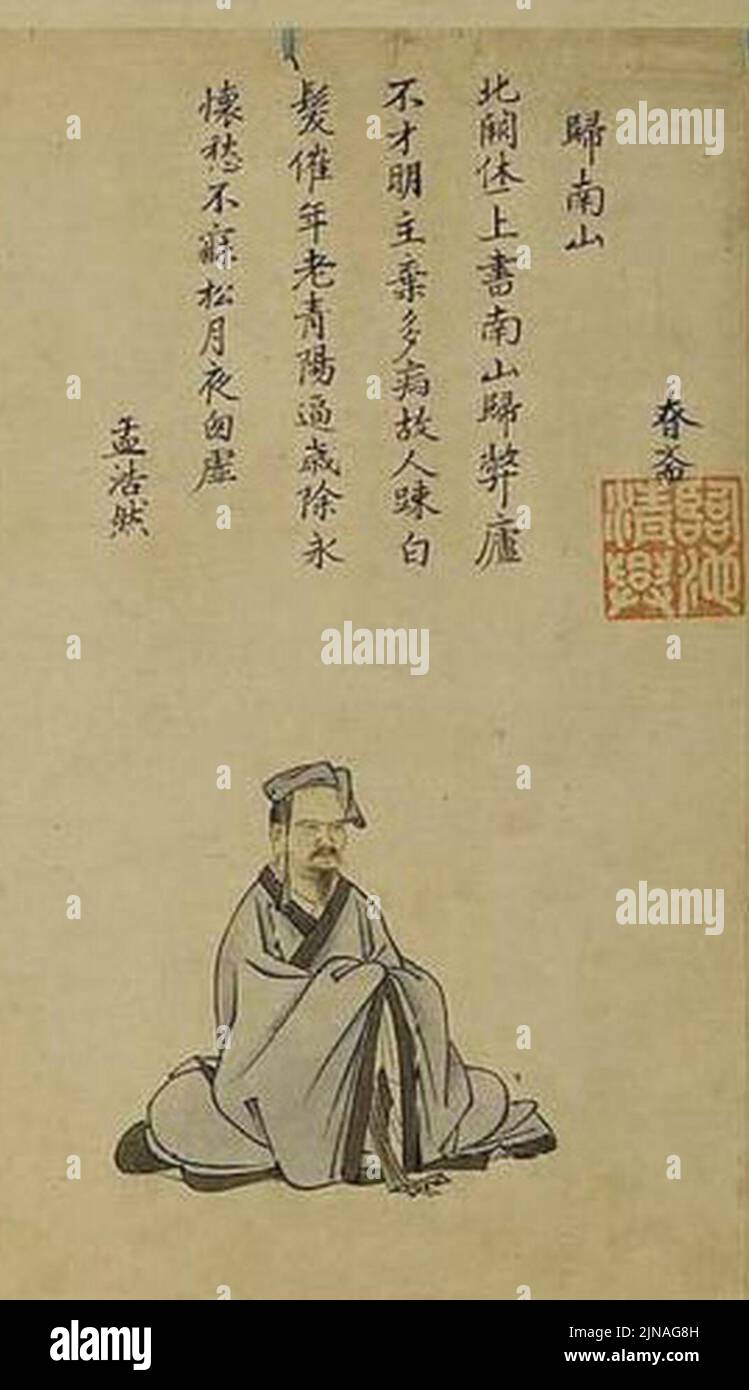 春斎
臨池清興
歸南山
北闕休上書南山歸弊廬
不才明主棄多病故人踈白
髮催年老青陽逼歲除永
懷愁不寐松月夜囱虛
孟浩然
alamy
alamy
alamy
alamy
Image ID: 2JNAG8H
www.alamy.com